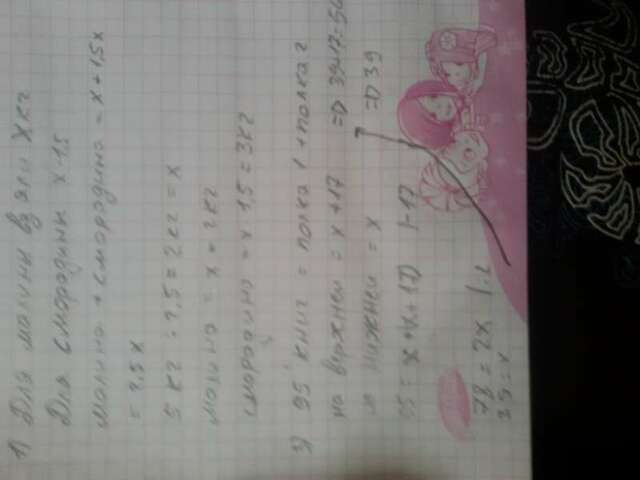 1) Для малины взяли X кг
Для смородины x·1,5
малина + смородина = x + 1,5x
= 2,5x
5 кг : 2,5 = 2 кг = x
малина = x = 2 кг
смородина = x·1,5 = 3 кг
95 книг = полка 1 + полка 2
на верхней = x + 17 => 39+17=56
нижней = x => 39
95 = x + (x + 17) |-17
78 = 2x |:2
39 = x